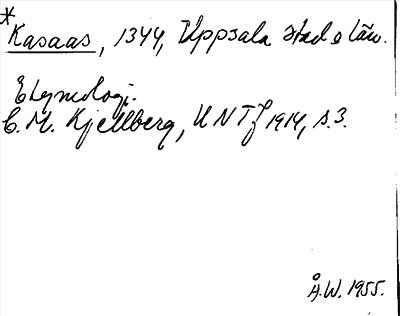 *
Kasaas, 1344, Uppsala stad o län.
Etymologi.
C. M. Kjellberg, UNTJ 1914, s. 3.
Å.W. 1955.